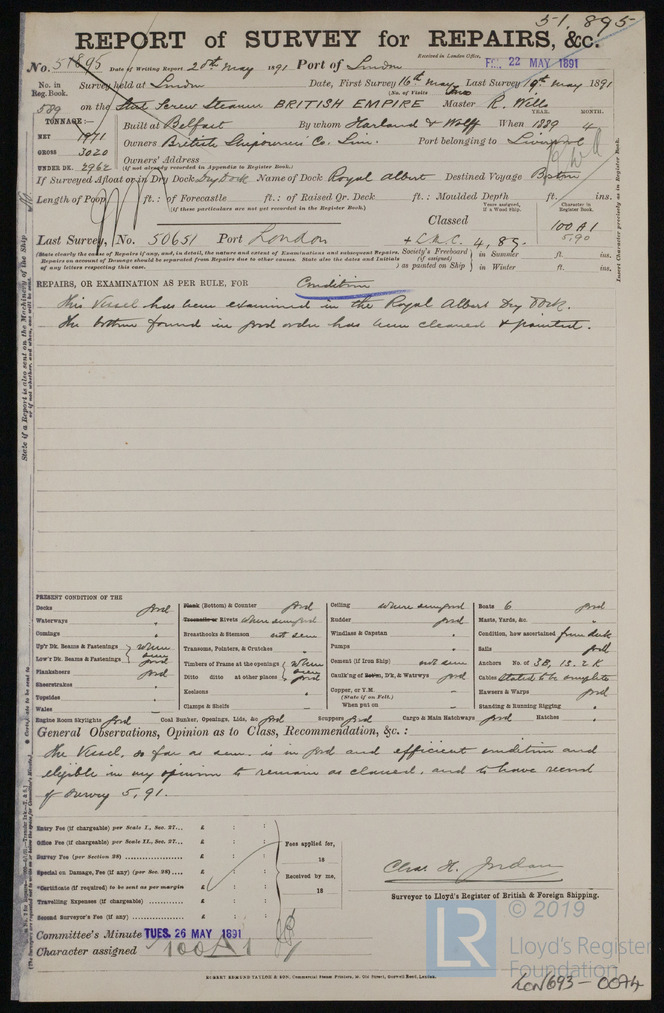 51,895
REPORT of SURVEY for REPAIRS, &c.
Received in London Office,
No. 51895 Date of Writing Report 20th May 1891 Port of London FRI. 22 MAY 1891
No. in Reg. Book. Survey held at London Date, First Survey 16th May Last Survey 19th May 1891
(No. of Visits Two
589 on the Steel Screw Steamer BRITISH EMPIRE Master R. Wills
TONNAGE:— YEAR. MONTH.
NET 1971 Built at Belfast By whom Harland & Wolff When 1889 4
GROSS 3020 Owners British Shipowners' Co. Lim. Port belonging to Liverpool
UNDER DK. 2962 Owners' Address
(if not already recorded in Appendix to Register Book.)
If Surveyed Afloat or in Dry Dock Dry Dock Name of Dock Royal Albert Destined Voyage Boston
Length of Poop ft.: of Forecastle ft.: of Raised Qr. Deck ft.: Moulded Depth ft. ins.
(if these particulars are not yet recorded in the Register Book.)
Years assigned, if a Wood Ship. Character in Register Book.
Classed 100 A1
5,90
Last Survey, No. 50651 Port London + L.M.C. 4,89.
(State clearly the cause of Repairs if any, and, in detail, the nature and extent of Examinations and subsequent Repairs.
Repairs on account of Damage should be separated from Repairs due to other causes. State also the dates and Initials
of any letters respecting this case.
Society's Freeboard (if assigned) as painted on Ship in Summer ft. ins.
in Winter ft. ins.
REPAIRS, OR EXAMINATION AS PER RULE, FOR Condition
This Vessel has been examined in the Royal Albert Dry Dock.
The bottom found in good order has been cleaned & painted.
PRESENT CONDITION OF THE
Decks good
Waterways "
Comings "
Up'r Dk. Beams & Fastenings
Low'r Dk. Beams & Fastenings where seen good
Planksheers good
Sheerstrakes "
Topsides "
Wales "
Plank (Bottom) & Counter good
Treenails or Rivets where seen good
Breasthooks & Stemson not seen
Transoms, Pointers, & Crutches "
Timbers of Frame at the openings
Ditto ditto at other places where seen good
Keelsons "
Clamps & Shelfs "
Ceiling where seen good
Rudder good
Windlass & Capstan "
Pumps "
Cement (if Iron Ship) not seen
Caulk'ng of Bottm, D'k, & Watrwys good
Copper, or Y.M.
(State if on Felt.)
When put on
Boats 6 good
Masts, Yards, &c. "
Condition, how ascertained from deck
Sails good
Anchors No. of 3B, 1S. 2K
Cables stated to be complete
Hawsers & Warps good
Standing & Running Rigging "
Engine Room Skylights good Coal Bunker, Openings, Lids, &c good Scuppers good Cargo & Main Hatchways good Hatches "
General Observations, Opinion as to Class, Recommendation, &c. :
The Vessel, so far as seen, is in good and efficient condition and
eligible in my opinion to remain as classed, and to have record
of survey 5,91.
Entry Fee (if chargeable) per Scale I., Sec. 27... £ : :
Office Fee (if chargeable) per Scale II., Sec. 27... £ : :
Survey Fee (per Section 28) £ : :
Special on Damage, Fee (if any) (per Sec. 28) £ : :
*Certificate (if required) to be sent as per margin £ : :
Travelling Expenses (if chargeable) £ : :
Second Surveyor's Fee (if any) £ : :
Fees applied for,
18
Received by me,
18
Chas. H. Jordan
Surveyor to Lloyd's Register of British & Foreign Shipping.
Committee's Minute TUES. 26 MAY 1891
Character assigned 100A1
ROBERT EDMUND TAYLOR & SON, Commercial Steam Printers, 19, Old Street, Goswell Road, London.
Insert Character precisely as in Register Book.
State if a Report is also sent on the Machinery of the Ship
LR
© 2019
Lloyd's Register
Foundation
LON693-0074